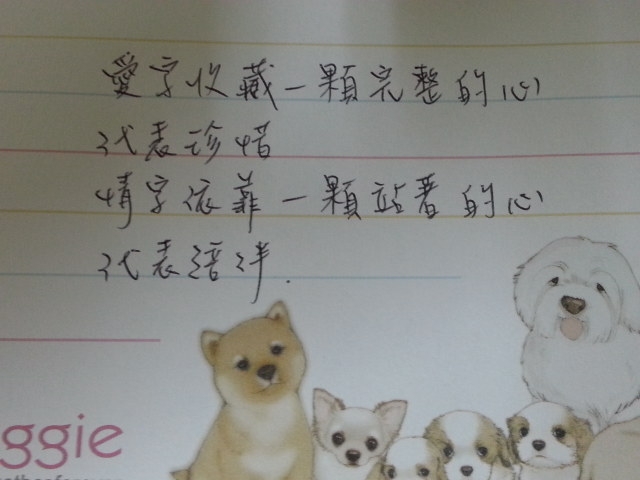 愛字收藏一顆完整的心
代表珍惜
情字依靠一顆站著的心
代表陪伴.
ggie